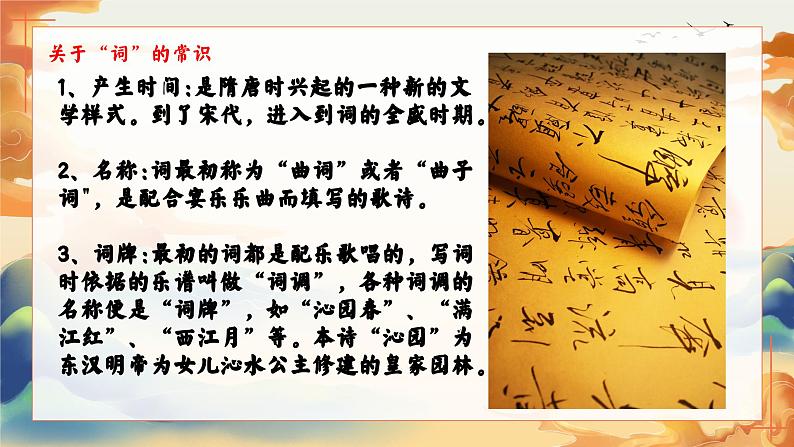 关于“词”的常识
1、产生时间:是隋唐时兴起的一种新的文
学样式。到了宋代，进入到词的全盛时期。
2、名称:词最初称为“曲词”或者“曲子
词"，是配合宴乐乐曲而填写的歌诗。
3、词牌:最初的词都是配乐歌唱的，写词
时依据的乐谱叫做“词调”，各种词调的
名称便是“词牌”，如“沁园春”、“满
江红”、“西江月”等。本诗“沁园”为
东汉明帝为女儿沁水公主修建的皇家园林。